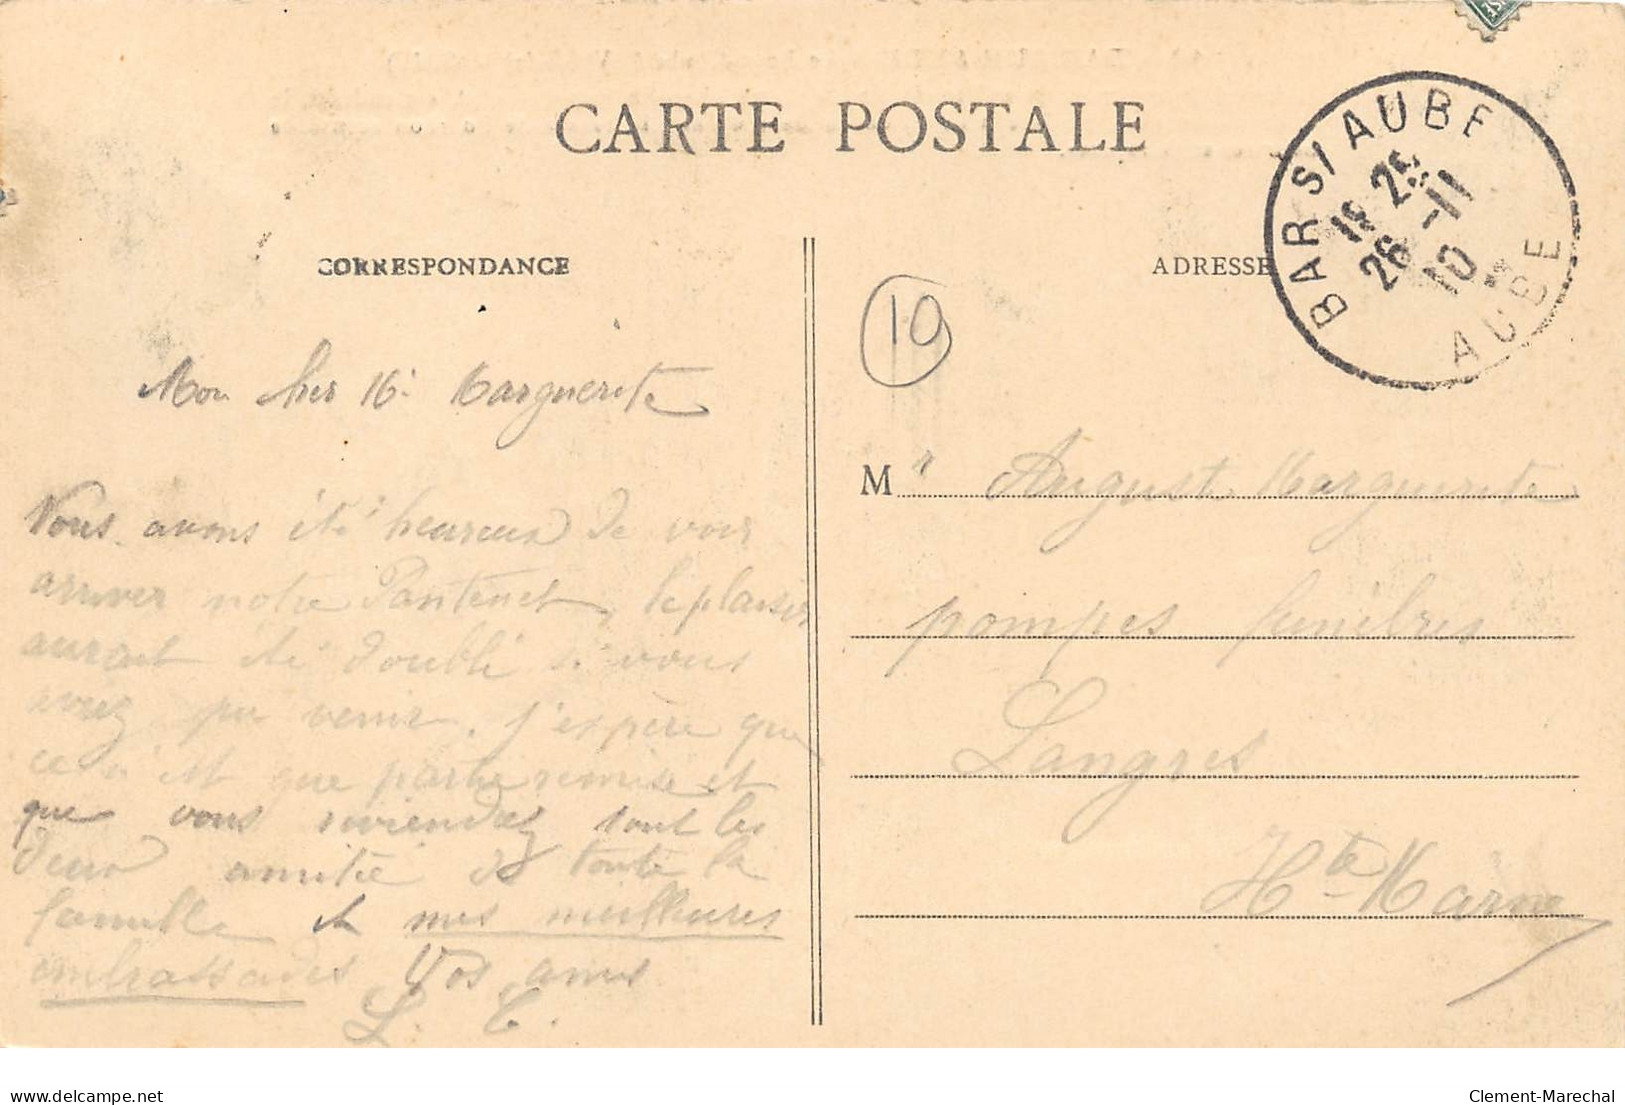 CARTE POSTALE
CORRESPONDANCE
ADRESSE
BAR S/ AUBE
26 -11
10
AUBE
10
Mon cher Mr Marguerite
Vous avons été heureux de voir
arriver notre Pantenet, le plaisir
aurait été doublé si vous
aviez pu venir. J'espère que
ce n'est que partie remise et
que vous reviendrez tout les
deux amitié de toute la
famille et mes meilleures
embrassades Vos amis
L. C.
M r August Marguerite
pompes funèbres
Langres
Hte Marne
Clement-Marechal